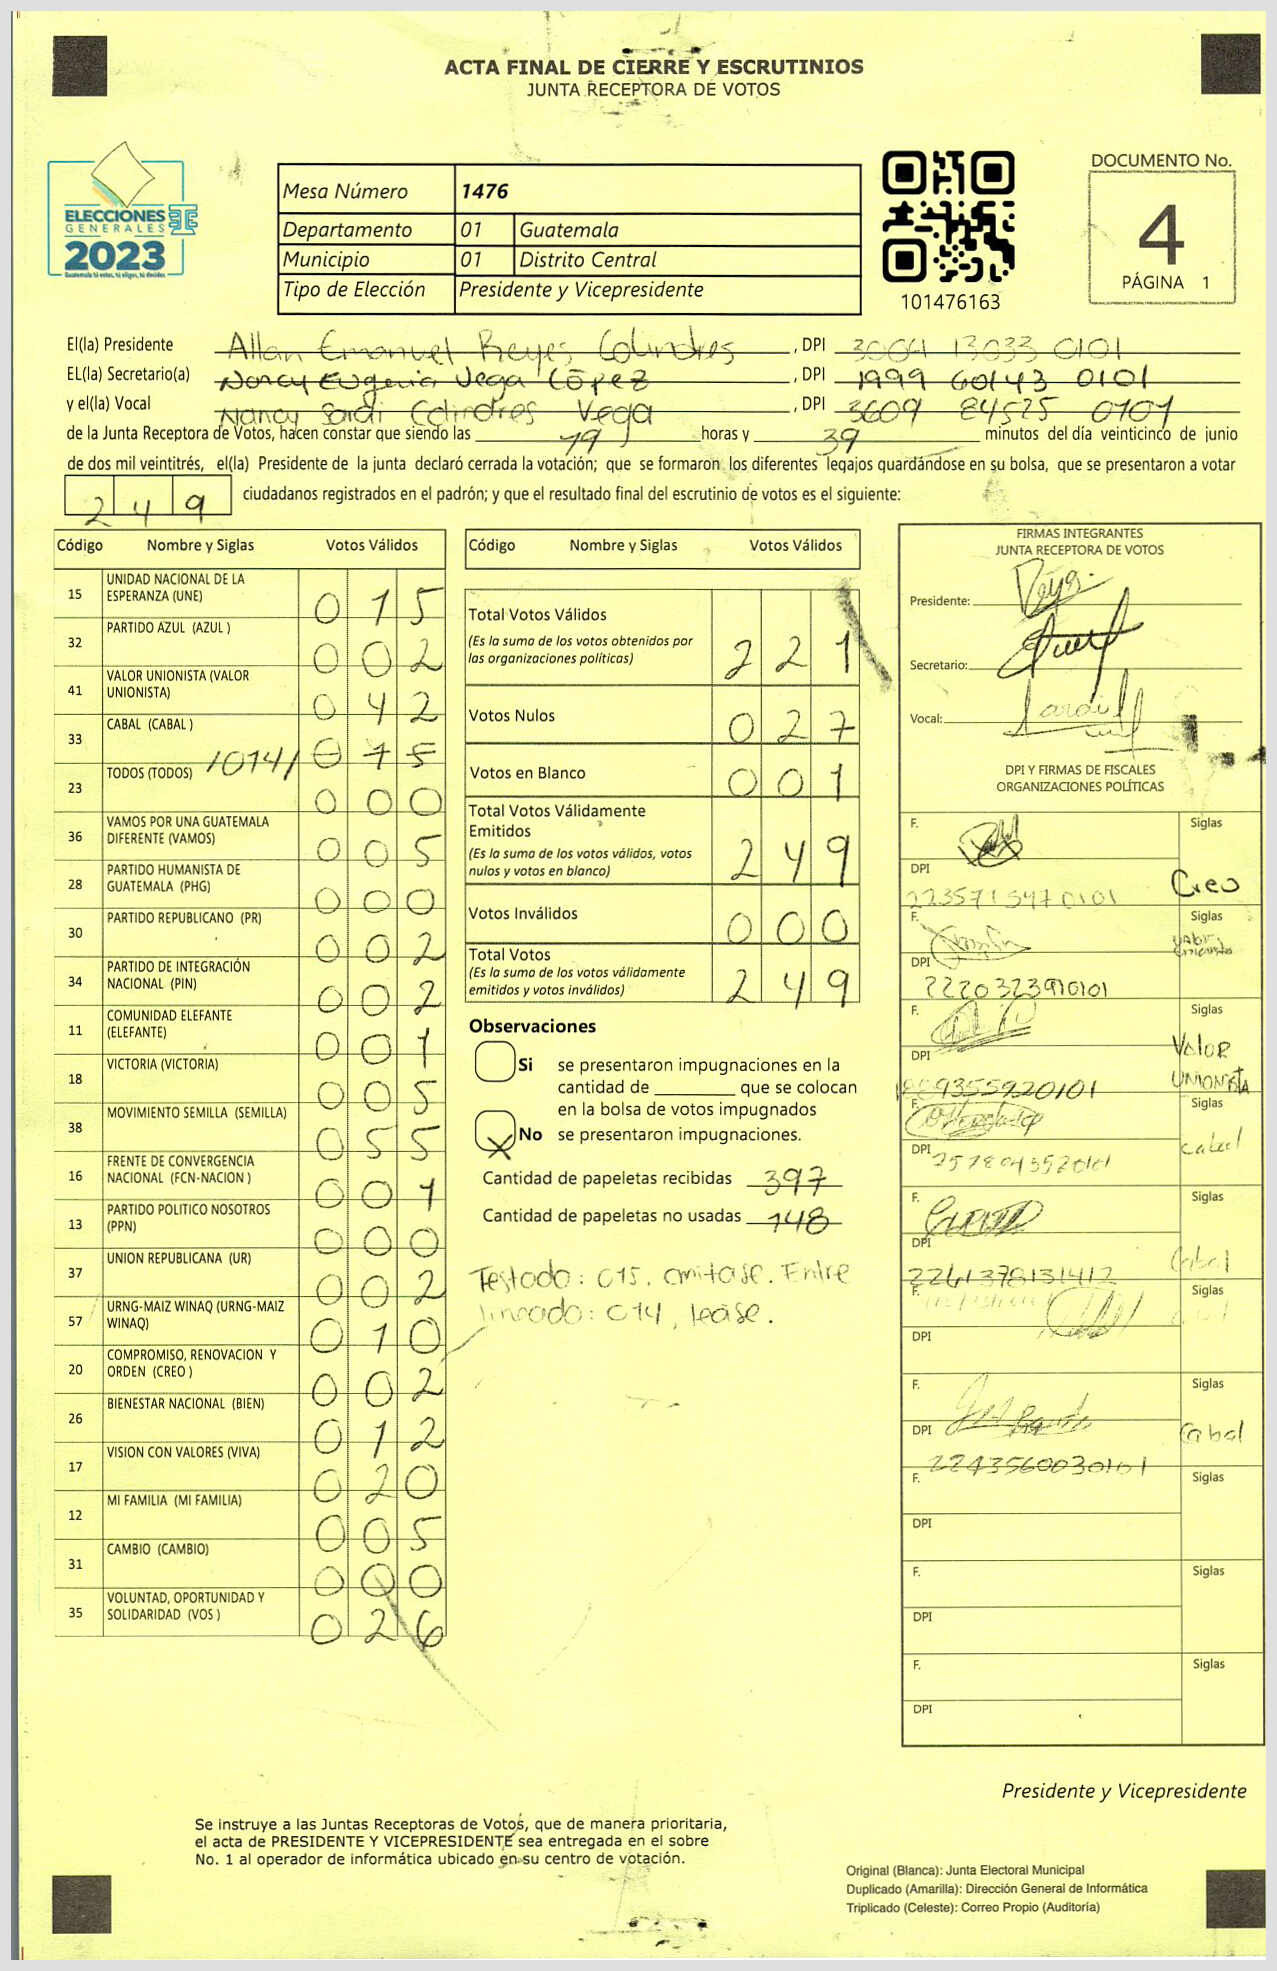 ACTA FINAL DE CIERRE Y ESCRUTINIOS
JUNTA RECEPTORA DE VOTOS
ELECCIONES
GENERALES
2023
Guatemala tú votas, tú eliges, tú decides
Mesa Número 1476
Departamento 01 Guatemala
Municipio 01 Distrito Central
Tipo de Elección Presidente y Vicepresidente
101476163
DOCUMENTO No.
4
PÁGINA 1
El(la) Presidente Allan Emanuel Reyes Colindres, DPI 3004 13033 0101
EL(la) Secretario(a) Nancy Eugenia Vega López, DPI 1999 60143 0101
y el(la) Vocal Nancy Saraí Colindres Vega, DPI 3609 84525 0101
de la Junta Receptora de Votos, hacen constar que siendo las 19 horas y 39 minutos del día veinticinco de junio
de dos mil veintitrés, el(la) Presidente de la junta declaró cerrada la votación; que se formaron los diferentes legajos guardándose en su bolsa, que se presentaron a votar
249 ciudadanos registrados en el padrón; y que el resultado final del escrutinio de votos es el siguiente:
Código Nombre y Siglas Votos Válidos
15 UNIDAD NACIONAL DE LA ESPERANZA (UNE) 015
32 PARTIDO AZUL (AZUL ) 002
41 VALOR UNIONISTA (VALOR UNIONISTA) 042
33 CABAL (CABAL ) /014/ 015
23 TODOS (TODOS) 000
36 VAMOS POR UNA GUATEMALA DIFERENTE (VAMOS) 005
28 PARTIDO HUMANISTA DE GUATEMALA (PHG) 000
30 PARTIDO REPUBLICANO (PR) 002
34 PARTIDO DE INTEGRACIÓN NACIONAL (PIN) 002
11 COMUNIDAD ELEFANTE (ELEFANTE) 001
18 VICTORIA (VICTORIA) 005
38 MOVIMIENTO SEMILLA (SEMILLA) 055
16 FRENTE DE CONVERGENCIA NACIONAL (FCN-NACION ) 001
13 PARTIDO POLITICO NOSOTROS (PPN) 000
37 UNION REPUBLICANA (UR) 002
57 URNG-MAIZ WINAQ (URNG-MAIZ WINAQ) 010
20 COMPROMISO, RENOVACION Y ORDEN (CREO ) 002
26 BIENESTAR NACIONAL (BIEN) 012
17 VISION CON VALORES (VIVA) 020
12 MI FAMILIA (MI FAMILIA) 005
31 CAMBIO (CAMBIO) 000
35 VOLUNTAD, OPORTUNIDAD Y SOLIDARIDAD (VOS ) 026
Código Nombre y Siglas Votos Válidos
Total Votos Válidos 221
(Es la suma de los votos obtenidos por
las organizaciones políticas)
Votos Nulos 027
Votos en Blanco 001
Total Votos Válidamente
Emitidos 249
(Es la suma de los votos válidos, votos
nulos y votos en blanco)
Votos Inválidos 000
Total Votos 249
(Es la suma de los votos válidamente
emitidos y votos inválidos)
Observaciones
Si se presentaron impugnaciones en la
cantidad de ________ que se colocan
en la bolsa de votos impugnados
X No se presentaron impugnaciones.
Cantidad de papeletas recibidas 397
Cantidad de papeletas no usadas 148
Testado: 015. omitase. Entre
lineado: 014, lease.
FIRMAS INTEGRANTES
JUNTA RECEPTORA DE VOTOS
Presidente:
Secretario:
Vocal:
DPI Y FIRMAS DE FISCALES
ORGANIZACIONES POLÍTICAS
F. Siglas
DPI Creo
2235715470101
F. Siglas
DPI Valor Unionista
2220323910101
F. Siglas
DPI Valor
UNIONISTA
F. Siglas
DPI Cabal
F. Siglas
DPI Cabal
2261378131412
F. Siglas
DPI
F. Siglas
DPI Cabal
2243560030101
F. Siglas
DPI
F. Siglas
DPI
F. Siglas
DPI
Presidente y Vicepresidente
Se instruye a las Juntas Receptoras de Votos, que de manera prioritaria,
el acta de PRESIDENTE Y VICEPRESIDENTE sea entregada en el sobre
No. 1 al operador de informática ubicado en su centro de votación.
Original (Blanca): Junta Electoral Municipal
Duplicado (Amarilla): Dirección General de Informática
Triplicado (Celeste): Correo Propio (Auditoría)